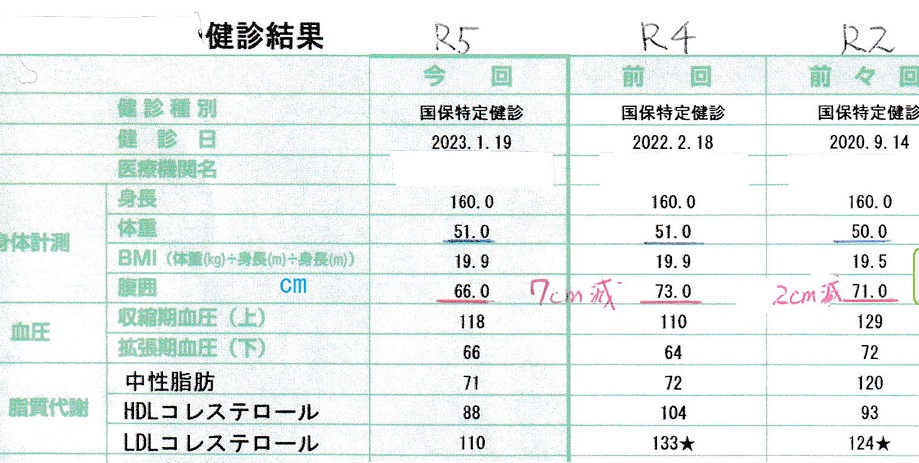 健診結果 R5 R4 R2
今回 前回 前々回
健診種別 国保特定健診 国保特定健診 国保特定健診
健診日 2023.1.19 2022.2.18 2020.9.14
医療機関名
身長 160.0 160.0 160.0
身体計測 体重 51.0 51.0 50.0
BMI(体重(kg)÷身長(m)÷身長(m)) 19.9 19.9 19.5
腹囲 cm 66.0 7cm減 73.0 2cm減 71.0
血圧 収縮期血圧(上) 118 110 129
拡張期血圧(下) 66 64 72
中性脂肪 71 72 120
脂質代謝 HDLコレステロール 88 104 93
LDLコレステロール 110 133★ 124★